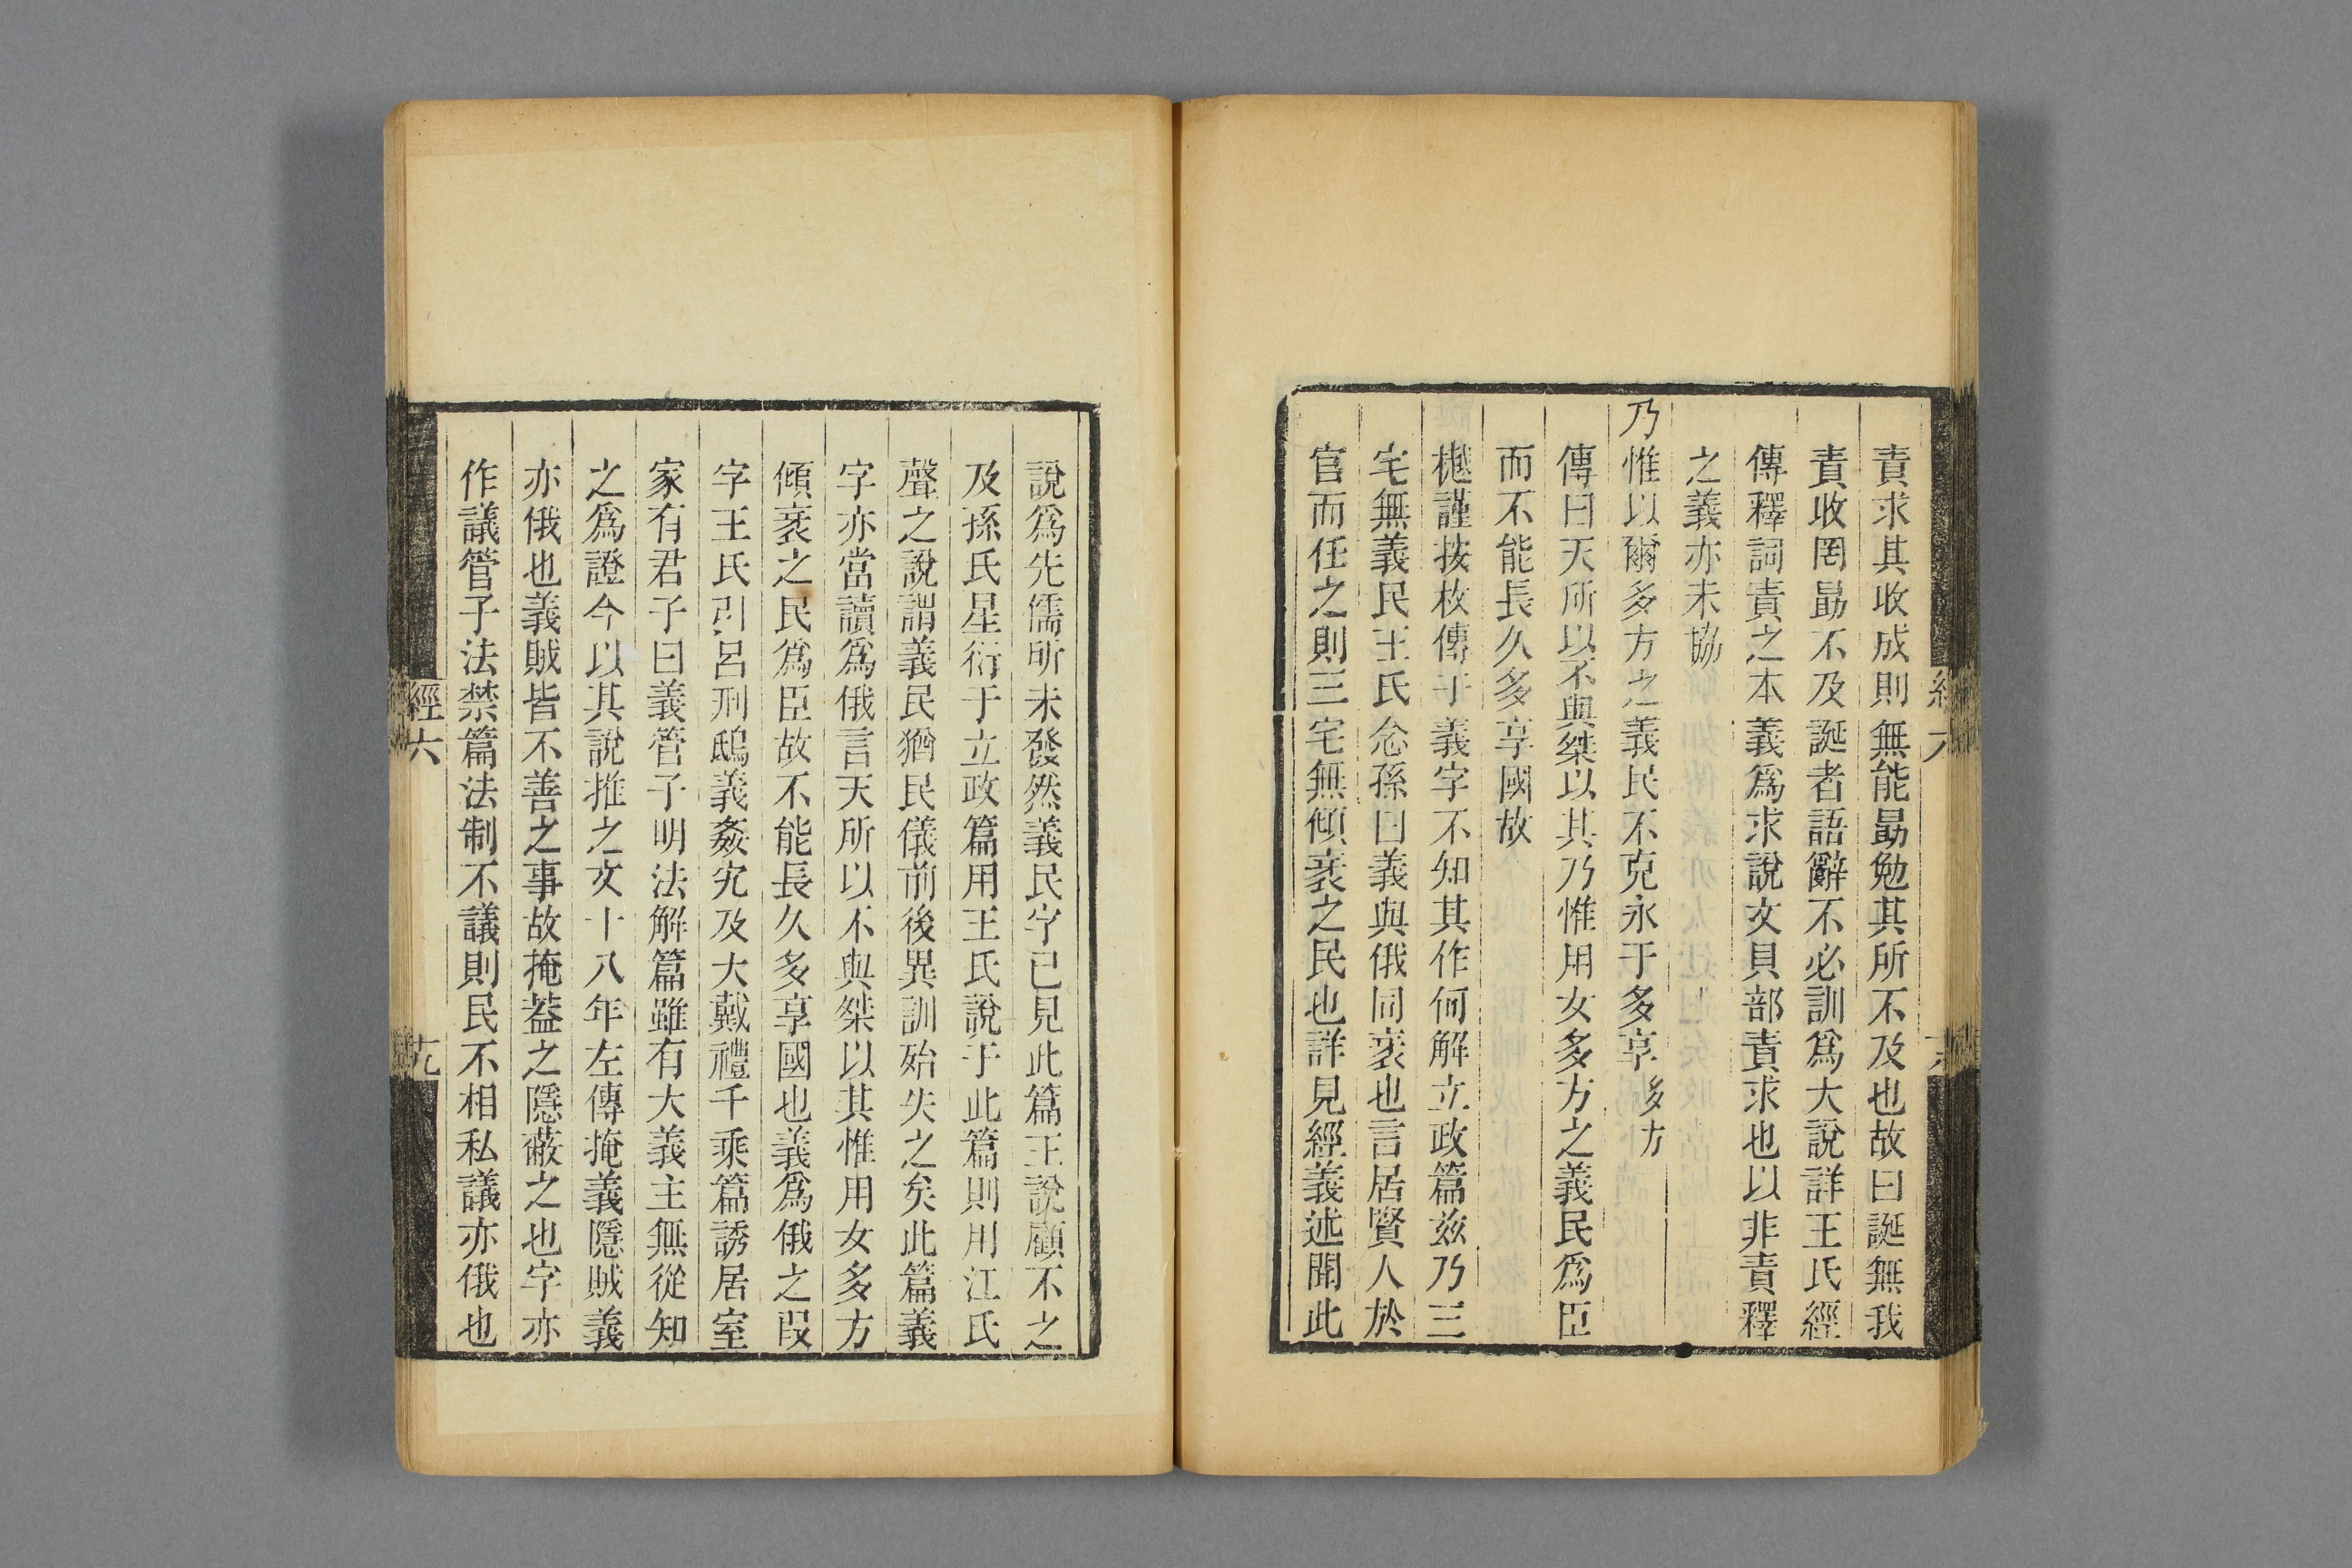 責求其收成則無能勗勉其所不及也故曰誕無我
責收罔勗不及誕者語辭不必訓爲大說詳王氏經
傳釋詞責之本義爲求說文貝部責求也以非責釋
之義亦未協
乃惟以爾多方之義民不克永于多享多方
傳曰天所以不與桀以其乃惟用女多方之義民爲臣
而不能長久多享國故
樾謹按枚傳于義字不知其作何解立政篇茲乃三
宅無義民王氏念孫曰義與俄同衺也言居賢人於
官而任之則三宅無傾衺之民也詳見經義述聞此
說爲先儒所未發然義民字已見此篇王說顧不之
及孫氏星衍于立政篇用王氏說于此篇則用江氏
聲之說謂義民猶民儀前後異訓殆失之矣此篇義
字亦當讀爲俄言天所以不與桀以其惟用女多方
傾衺之民爲臣故不能長久多享國也義爲俄之叚
字王氏引呂刑鴟義姦宄及大戴禮千乘篇誘居室
家有君子曰義管子明法解篇雖有大義主無從知
之爲證今以其說推之文十八年左傳掩義隱賊義
亦俄也義賊皆不善之事故掩蓋之隱蔽之也字亦
作議管子法禁篇法制不議則民不相私議亦俄也
經六